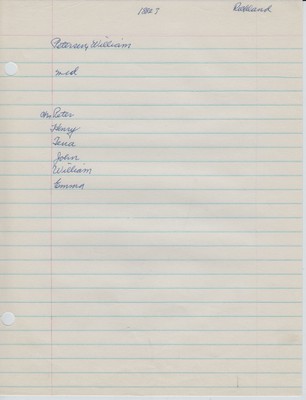 1827 Redland
Petersen, William
md
ch Peter
Henry
Tena
John
William
Emma